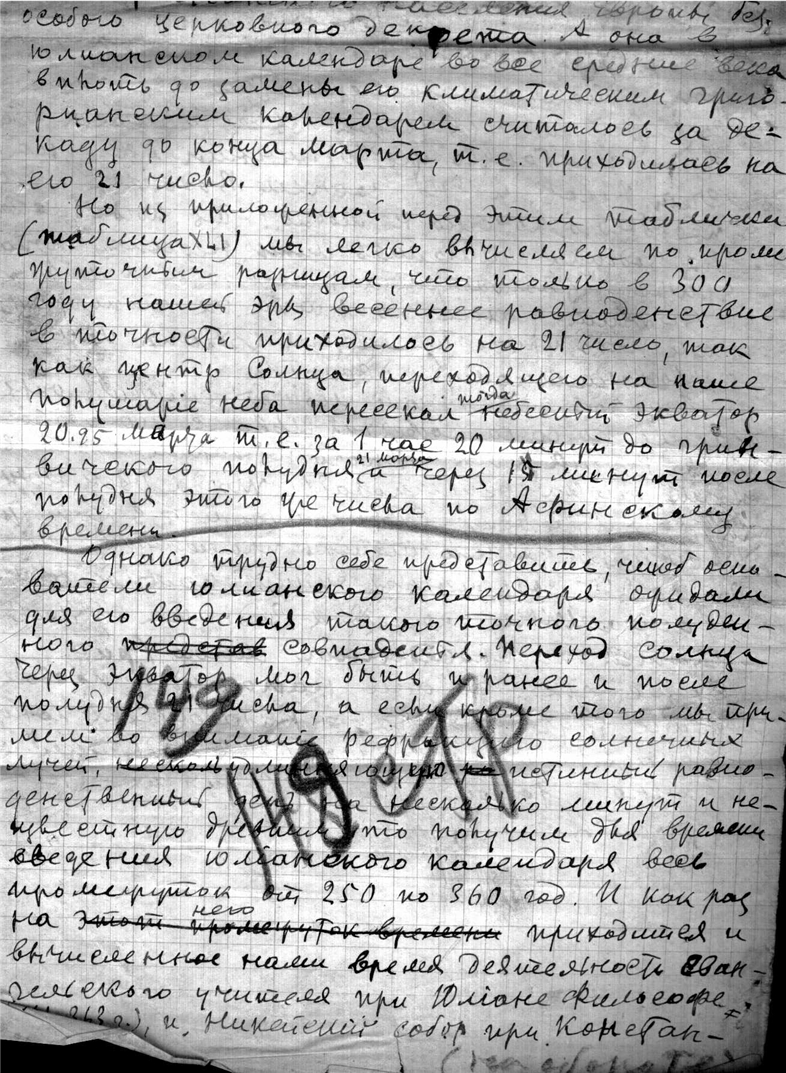 населения Европы без
особого церковного декрета. А она в
юлианском календаре во все средние века
вплоть до замены его климатическим григо-
рианским календарем считалось за де-
каду до конца марта, т.е. приходилась на
его 21 число.
Но из приложенной перед этим таблички
(таблица XLI) мы легко вычисляем по проме
жуточным разницам, что только в 300
году нашей эры весеннее равноденствие
в точности приходилось на 21 число, так
как центр Солнца, переходящего на наше
полушаріе неба пересекал тогда небесный экватор
20.95 марта т.е. за 1 час 20 минут до грин-
вического полудня 21 марта и через 15 минут после
полудня этого же числа по Афинскому
времени.
Однако трудно себе представить, чтоб осно-
ватели юлианского календаря ожидали
для его введения такого точного полуден-
ного представ совпадентя. Переход солнца
через экватор мог быть и ранее и после
полудня 21 числа, а если кроме того мы при-
мем во вниманіе рефракцию солнечных
лучей, истинный равно-
денственный день на несколько минут и не-
известную древним, то получим для времени
введения юліанского календаря весь
промежуток от 250 по 360 год. И как раз
на него этот промежуток времени приходится и
вычисленное нами время деятельности еван-
гельского учителя при Юліане Философе
и Никейский собор при Констан-
(на обороте)
149
149 стр